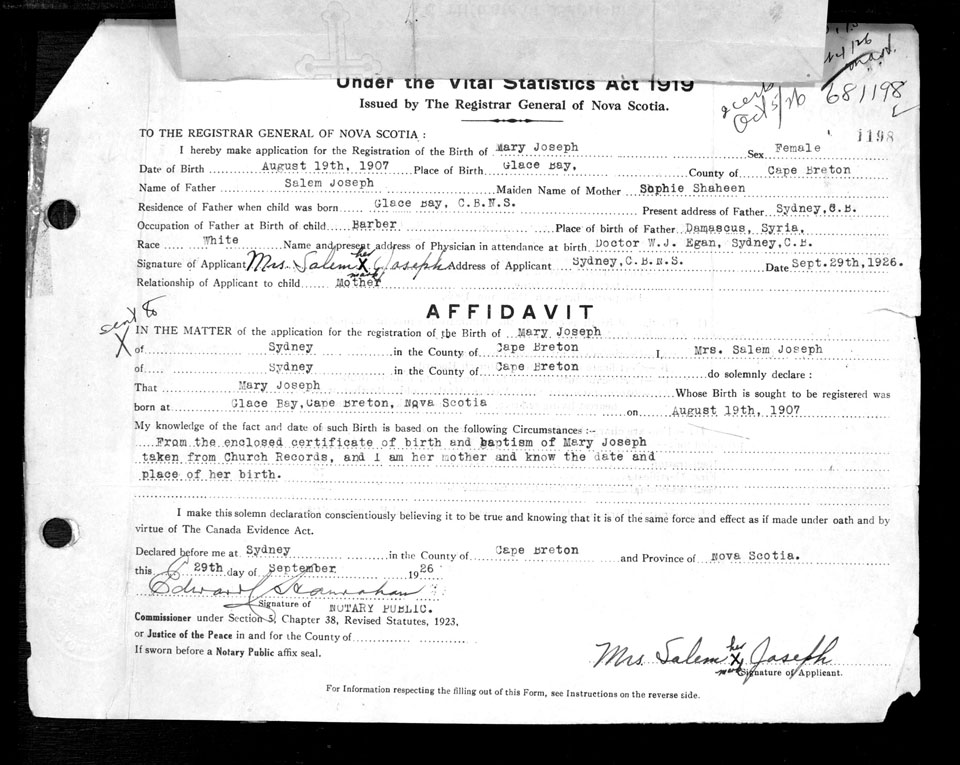 Under the Vital Statistics Act 1919
Issued by The Registrar General of Nova Scotia.
Oct 5/26
681198
1198
TO THE REGISTRAR GENERAL OF NOVA SCOTIA :
I hereby make application for the Registration of the Birth of Mary Joseph Sex Female
Date of Birth August 19th, 1907 Place of Birth Glace Bay, County of Cape Breton
Name of Father Salem Joseph Maiden Name of Mother Sophie Shaheen
Residence of Father when child was born Glace Bay, C.B.N.S. Present address of Father Sydney, C.B.
Occupation of Father at Birth of child Barber Place of birth of Father Damascus, Syria,
Race White Name and present address of Physician in attendance at birth Doctor W.J. Egan, Sydney, C.B.
Signature of Applicant Mrs. Salem her X mark Joseph Address of Applicant Sydney, C.B.N.S. Date Sept. 29th, 1926.
Relationship of Applicant to child Mother
AFFIDAVIT
sent to
X
IN THE MATTER of the application for the registration of the Birth of Mary Joseph
of Sydney in the County of Cape Breton I, Mrs. Salem Joseph
of Sydney in the County of Cape Breton do solemnly declare :
That Mary Joseph Whose Birth is sought to be registered was
born at Glace Bay, Cape Breton, Nova Scotia on August 19th, 1907
My knowledge of the fact and date of such Birth is based on the following Circumstances :-
From the enclosed certificate of birth and baptism of Mary Joseph
taken from Church Records, and I am her mother and know the date and
place of her birth.
I make this solemn declaration conscientiously believing it to be true and knowing that it is of the same force and effect as if made under oath and by
virtue of The Canada Evidence Act.
Declared before me at Sydney in the County of Cape Breton and Province of Nova Scotia.
this 29th day of September 1926
Edward J Hanrahan
Signature of NOTARY PUBLIC.
Commissioner under Section 5, Chapter 38, Revised Statutes, 1923,
or Justice of the Peace in and for the County of
If sworn before a Notary Public affix seal.
Mrs. Salem her X mark Joseph
Signature of Applicant.
For Information respecting the filling out of this Form, see Instructions on the reverse side.